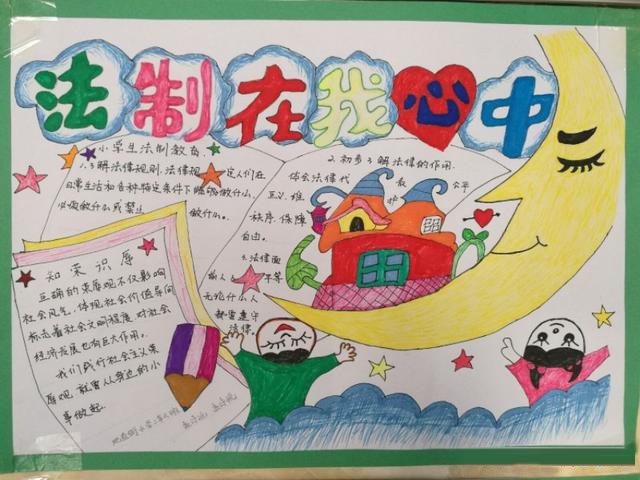 法制在我心中
小学生法制教育
1.了解法律规则,法律规定人们在
日常生活和各种特定条件下能够做什么,
必须做什么或禁止做什么。
2.初步了解法律的作用.
体会法律代表公平
正义,维护
秩序,保障
自由。
3.法律面
前人人平等
无论什么人
都要遵守
法律。
知荣识辱
正确的荣辱观不仅影响
社会风气,体现社会价值导向
标志着社会文明程度,对社会
经济发展也有巨大作用。
我们践行社会主义荣
辱观,就要从身边的小
事做起.